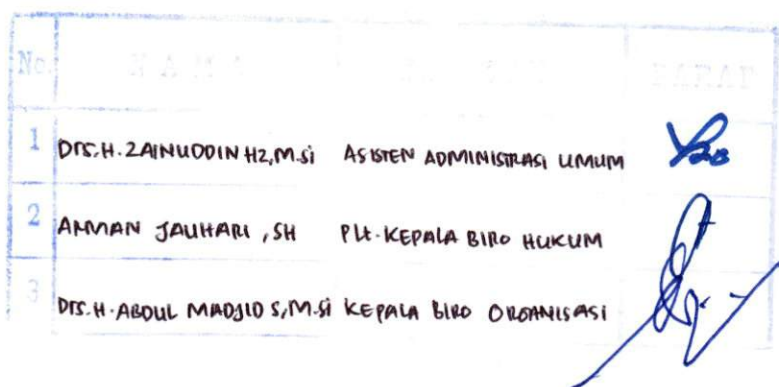 No. NAMA PARAF
1 Drs. H. ZAINUDDIN HZ, M.Si ASISTEN ADMINISTRASI UMUM
2 AMMAN JAUHARI, SH Plt. KEPALA BIRO HUKUM
3 Drs. H. ABDUL MADJID S, M.Si KEPALA BIRO ORGANISASI